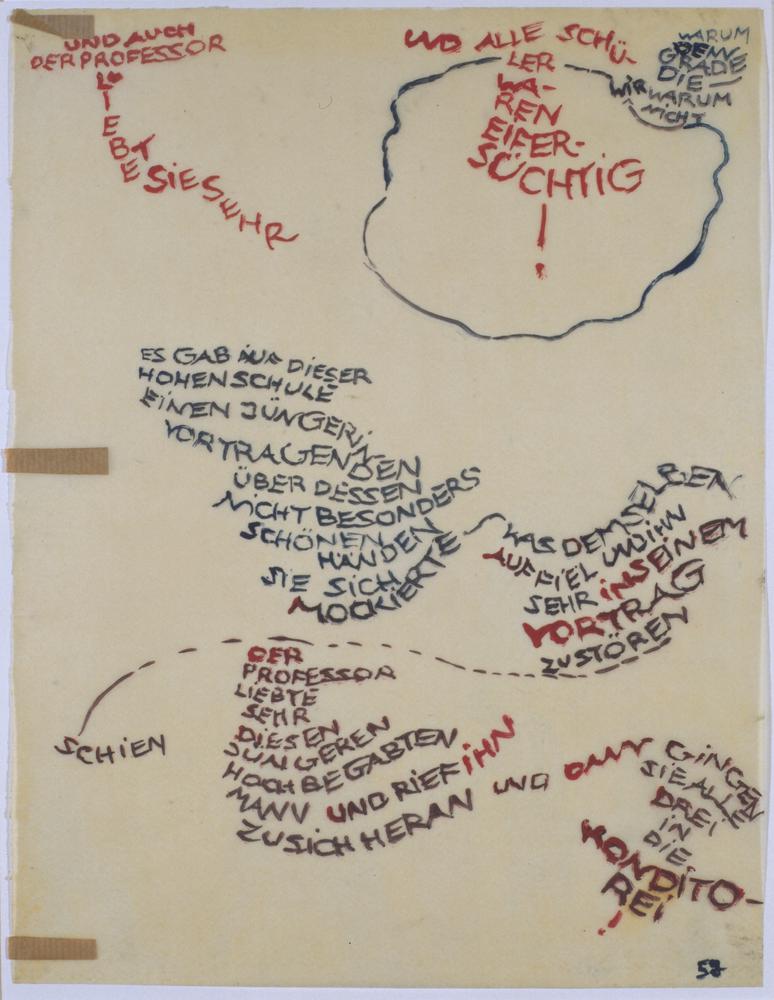 UND AUCH
DER PROFESSOR
LIEBTE SIE SEHR
UND ALLE SCHÜ-
LER
WA-
REN
EIFER-
SÜCHTIG
!
WARUM
DENN
GRADE
DIE —
WIR WARUM
NICHT
ES GAB AUF DIESER
HOHENSCHULE
EINEN JÜNGEREN
VORTRAGENDEN
ÜBER DESSEN
NICHT BESONDERS
SCHÖNEN
HÄNDEN
SIE SICH
MOCKIERTE
WAS DEMSELBEN
AUFFIEL UND IHN
SEHR IN SEINEM
VORTRAG
ZU STÖREN
SCHIEN
DER
PROFESSOR
LIEBTE
SEHR
DIESEN
JÜNGEREN
HOCHBEGABTEN
MANN UND RIEF IHN
ZU SICH HERAN UND DANN GINGEN
SIE ALLE
DREI
IN
DIE
KONDITO-
REI
!